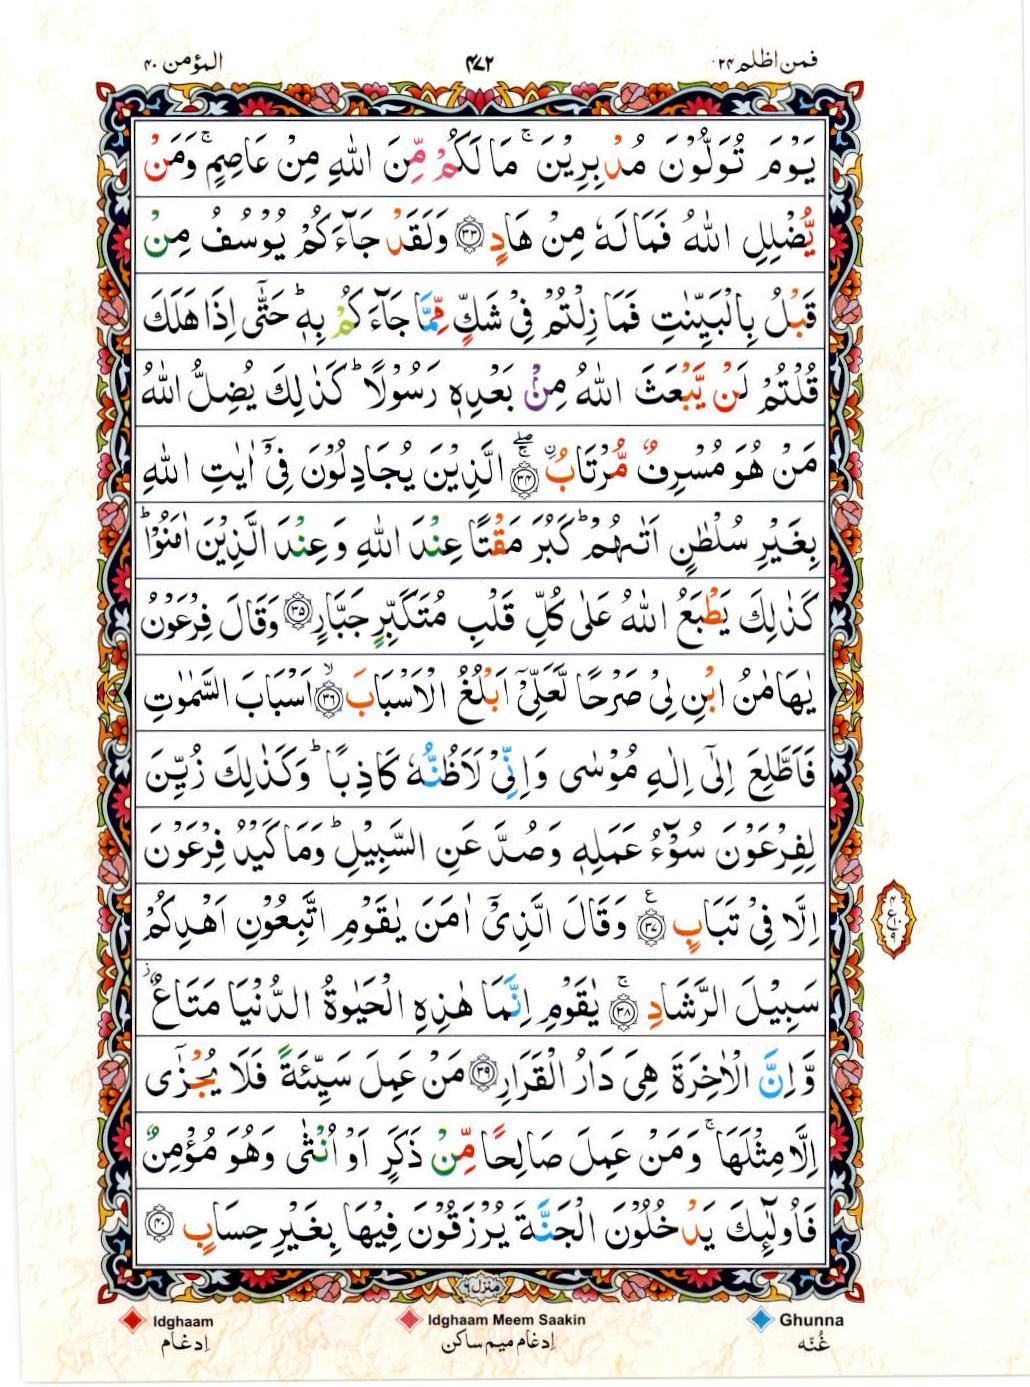 فمن اظلم ۲۴
۴۷۲
المؤمن ۴۰
يَوْمَ تُوَلُّوْنَ مُدْبِرِيْنَ ۚ مَا لَكُمْ مِّنَ اللّٰهِ مِنْ عَاصِمٍ ۚ وَمَنْ
يُّضْلِلِ اللّٰهُ فَمَا لَهٗ مِنْ هَادٍ ﴿۳۳﴾ وَلَقَدْ جَآءَكُمْ يُوْسُفُ مِنْ
قَبْلُ بِالْبَيِّنٰتِ فَمَا زِلْتُمْ فِىْ شَكٍّ مِّمَّا جَآءَكُمْ بِهٖ ؕ حَتّٰٓى اِذَا هَلَكَ
قُلْتُمْ لَنْ يَّبْعَثَ اللّٰهُ مِنْۢ بَعْدِهٖ رَسُوْلًا ؕ كَذٰلِكَ يُضِلُّ اللّٰهُ
مَنْ هُوَ مُسْرِفٌ مُّرْتَابُ ۨ ﴿۳۴﴾ ۚۖ الَّذِيْنَ يُجَادِلُوْنَ فِىْٓ اٰيٰتِ اللّٰهِ
بِغَيْرِ سُلْطٰنٍ اَتٰىهُمْ ؕ كَبُرَ مَقْتًا عِنْدَ اللّٰهِ وَعِنْدَ الَّذِيْنَ اٰمَنُوْا ؕ
كَذٰلِكَ يَطْبَعُ اللّٰهُ عَلٰى كُلِّ قَلْبِ مُتَكَبِّرٍ جَبَّارٍ ﴿۳۵﴾ وَقَالَ فِرْعَوْنُ
يٰهَامٰنُ ابْنِ لِىْ صَرْحًا لَّعَلِّىْٓ اَبْلُغُ الْاَسْبَابَ ﴿۳۶﴾ ۙ اَسْبَابَ السَّمٰوٰتِ
فَاَطَّلِعَ اِلٰٓى اِلٰهِ مُوْسٰى وَاِنِّىْ لَاَظُنُّهٗ كَاذِبًا ؕ وَكَذٰلِكَ زُيِّنَ
لِفِرْعَوْنَ سُوْٓءُ عَمَلِهٖ وَصُدَّ عَنِ السَّبِيْلِ ؕ وَمَا كَيْدُ فِرْعَوْنَ
اِلَّا فِىْ تَبَابٍ ﴿۳۷﴾ ع وَقَالَ الَّذِىْٓ اٰمَنَ يٰقَوْمِ اتَّبِعُوْنِ اَهْدِكُمْ
سَبِيْلَ الرَّشَادِ ﴿۳۸﴾ ۚ يٰقَوْمِ اِنَّمَا هٰذِهِ الْحَيٰوةُ الدُّنْيَا مَتَاعٌ ز
وَّاِنَّ الْاٰخِرَةَ هِىَ دَارُ الْقَرَارِ ﴿۳۹﴾ مَنْ عَمِلَ سَيِّئَةً فَلَا يُجْزٰٓى
اِلَّا مِثْلَهَا ۚ وَمَنْ عَمِلَ صَالِحًا مِّنْ ذَكَرٍ اَوْ اُنْثٰى وَهُوَ مُؤْمِنٌ
فَاُولٰٓئِكَ يَدْخُلُوْنَ الْجَنَّةَ يُرْزَقُوْنَ فِيْهَا بِغَيْرِ حِسَابٍ ﴿۴۰﴾
منزل ۶
Idghaam
Idghaam Meem Saakin
Ghunna
اِدغام
اِدغام میم ساکن
غُنّه